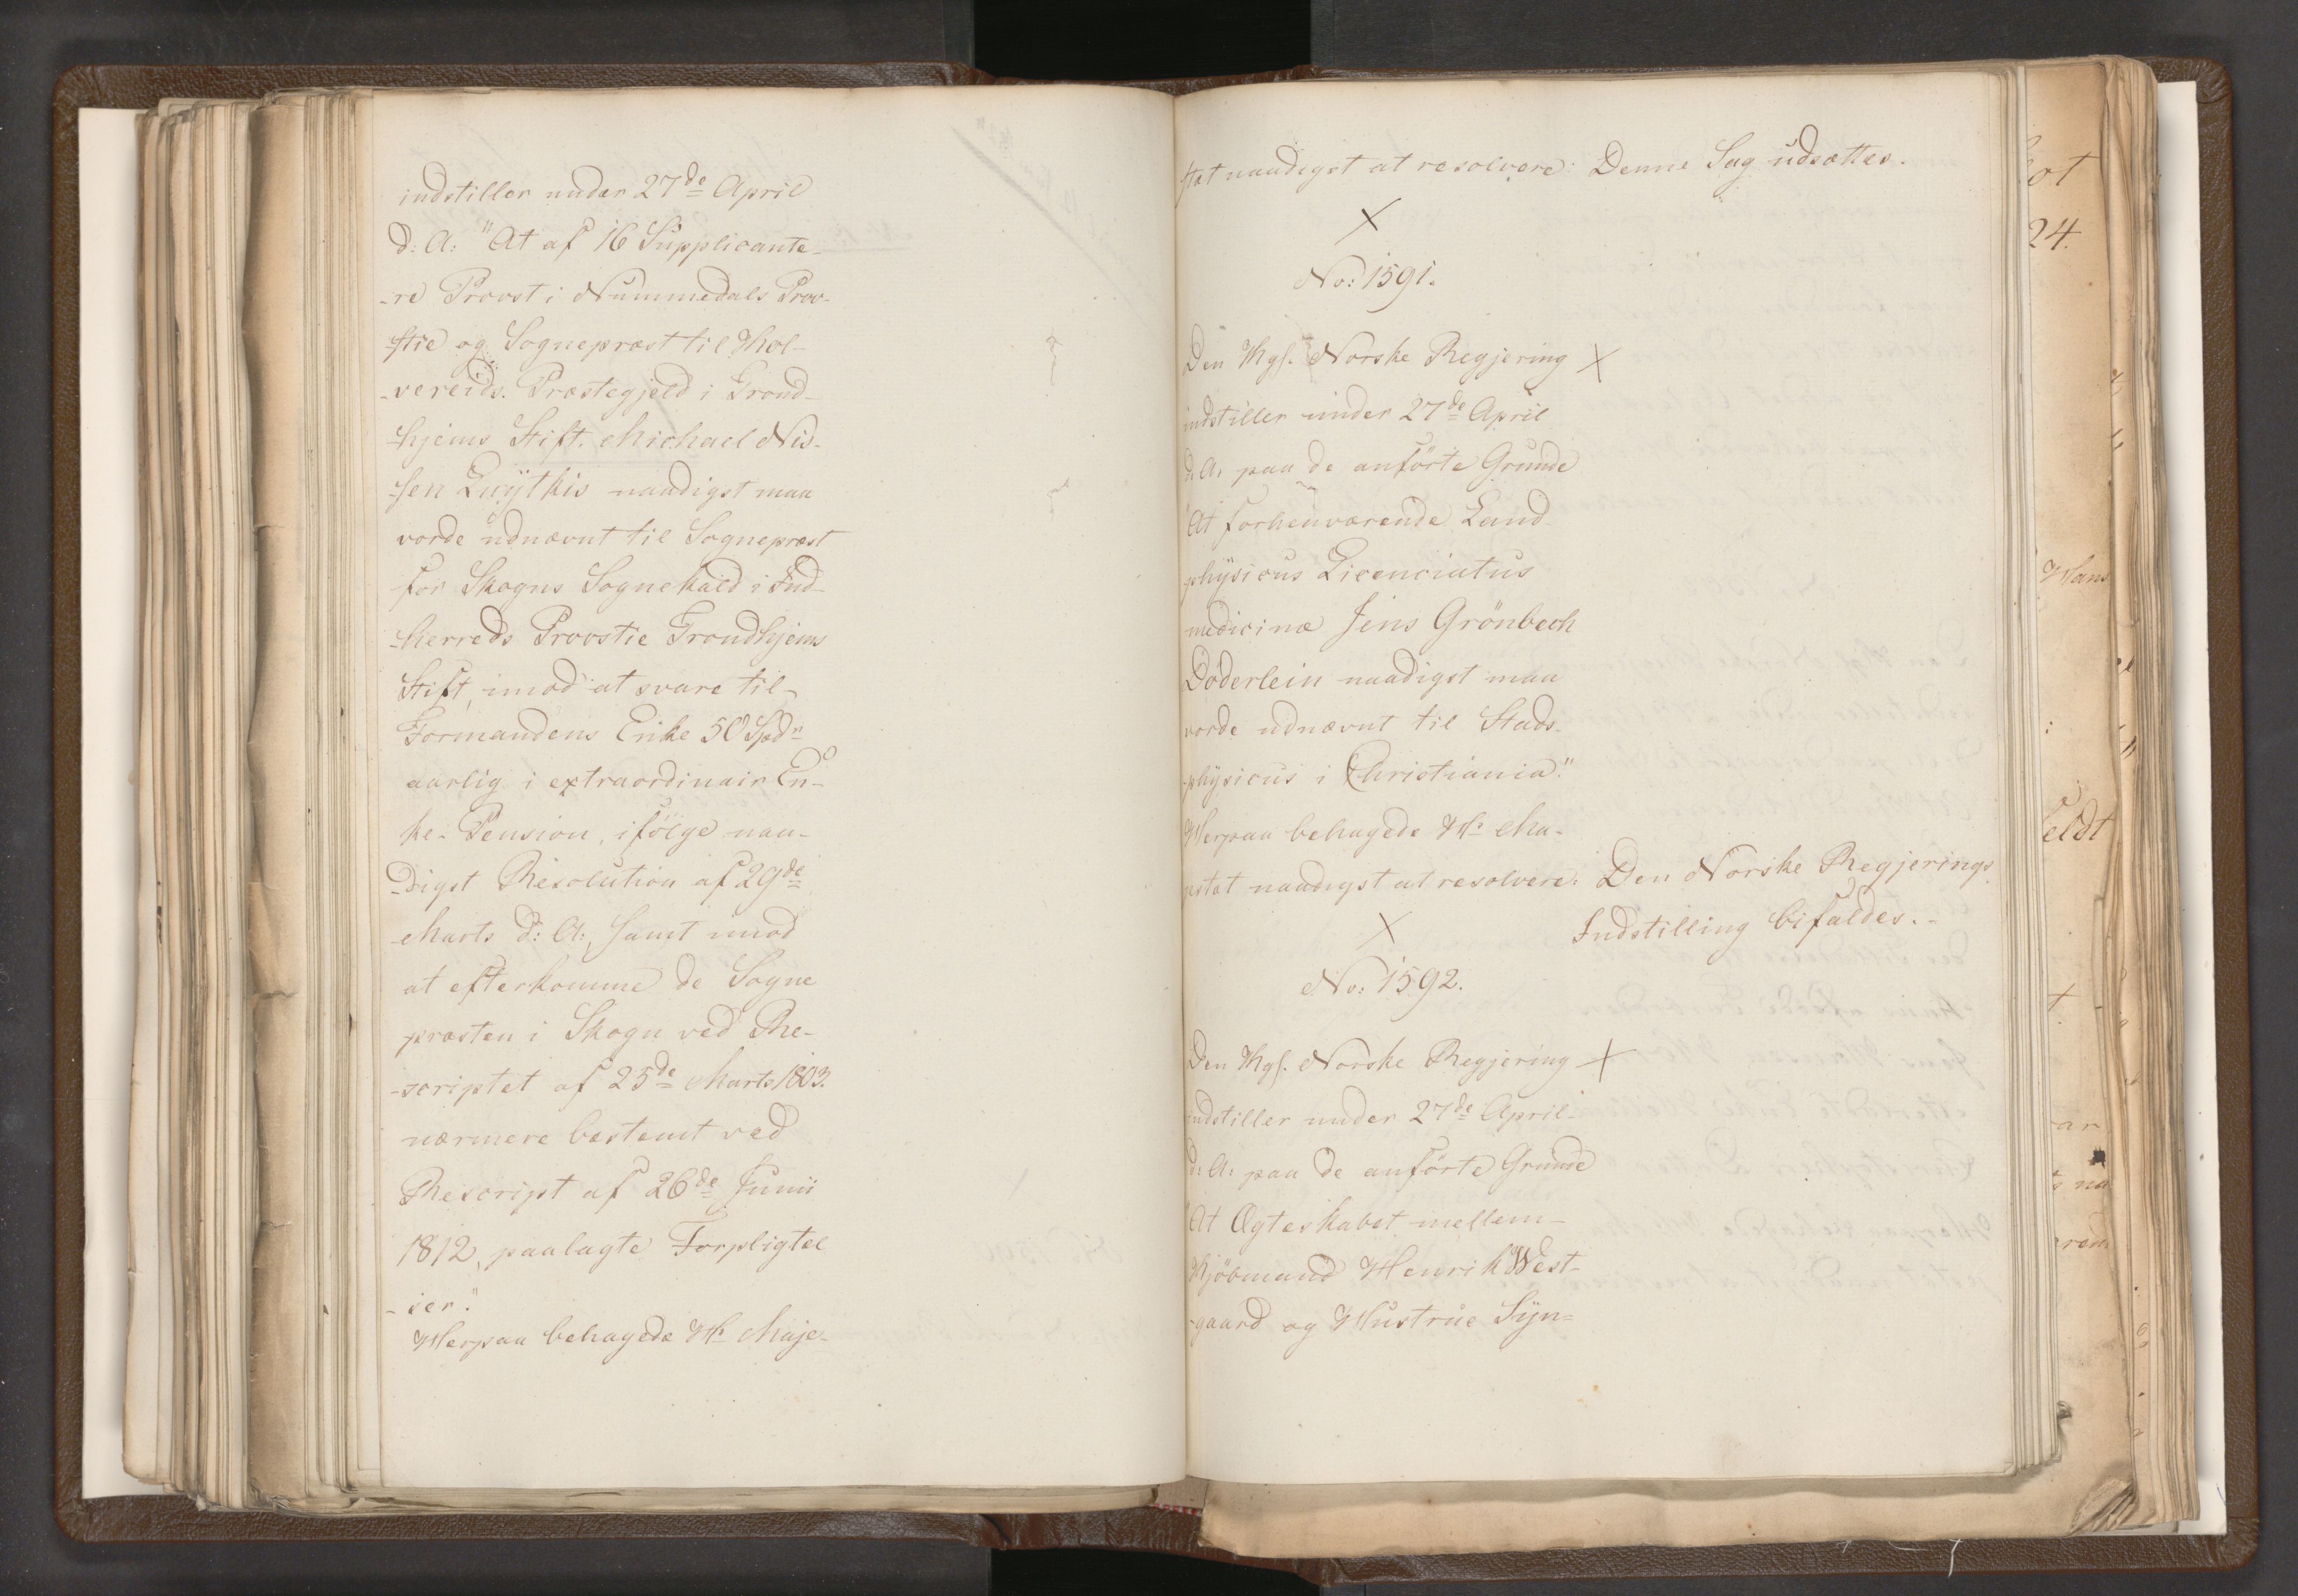 indstiller under 27de April
d: A: "At af 16 Supplicante-
-re Provst i Nummedals Prov-
-stie og Sognepræst til Kol-
-vereids Præstegjeld i Trond-
-hjems Stift. Michael Nis-
-sen
naadigst maa
vorde udnævnt til Sognepræst
for Skogns Sognekald i Ind-
-herreds Provstie Trondhjems
Stift, imod at svare til
Formandens Enke 50 Spd
aarlig i extraordinair En-
ke-Pension, ifölge naa-
-digst Resolution af 29de
Marts d: A:, samt imod
at efterkomme de Sogne
præsten i Skogn ved Re-
-scriptet af 25de Marts 1803.
nærmere bestemt ved
Rescript af 26de Junii
1812, paalagte Forpligtel
-ser."
Herpaa behagede Hs Maje-
stæt naadigst at resolvere: Denne Sag udsættes.
No: 1591.
Den Kgl. Norske Regjering
indstiller under 27de April
d: A: paa de anförte Grunde
"At forhenværende Land
physicus Licenciatus
medicinæ Jens Grönbech
Döderlein naadigst maa
vorde udnævnt til Stads-
-physicus i Christiania."
Herpaa behagede Hs Ma-
jestæt naadigst at resolvere: Den Norske Regjerings
Indstilling bifaldes.-
No: 1592.
Den Kgl. Norske Regjering
indstiller under 27de April
d: A: paa de anförte Grunde
"At Ægteskabet mellem
Kjöbmand Henrik West-
-gaard og Hustrue Syn=
ot
24.
Hans
eldt